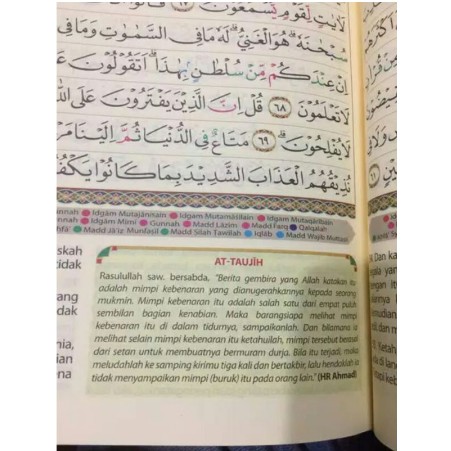 لَاٰيٰتٍ لِّقَوْمٍ يَّسْمَعُوْنَ
سُبْحٰنَهٗ ۗ هُوَ الْغَنِيُّ ۗ لَهٗ مَا فِى السَّمٰوٰتِ وَمَا فِى
اِنْ عِنْدَكُمْ مِّنْ سُلْطٰنٍۢ بِهٰذَا ۗ اَتَقُوْلُوْنَ
لَا تَعْلَمُوْنَ ٦٨ قُلْ اِنَّ الَّذِيْنَ يَفْتَرُوْنَ عَلَى اللّٰهِ
لَا يُفْلِحُوْنَ ٦٩ مَتَاعٌ فِى الدُّنْيَا ثُمَّ اِلَيْنَا
نُذِيْقُهُمُ الْعَذَابَ الشَّدِيْدَ بِمَا كَانُوْا
Idgām Mutajānisain Idgām Mutamāṡilain Idgām Mutaqāribain
Idgām Mīmī Gunnah Madd Lāzim Madd Farq Qalqalah
Madd Jā'iz Munfaṣil Madd Ṣilah Ṭawīlah Iqlāb Madd Wajib Muttaṣil
AT-TAUJĪH
Rasulullah saw. bersabda, "Berita gembira yang Allah katakan itu
adalah mimpi kebenaran yang dianugerahkannya kepada seorang
mukmin. Mimpi kebenaran itu adalah salah satu dari empat puluh
sembilan bagian kenabian. Maka barangsiapa melihat mimpi
kebenaran itu di dalam tidurnya, sampaikanlah. Dan bilamana ia
melihat selain mimpi kebenaran itu ketahuilah, mimpi tersebut berasal
dari setan untuk membuatnya bermuram durja. Bila itu terjadi, maka
meludahlah ke samping kirimu tiga kali dan bertakbir, lalu hendaklah ia
tidak menyampaikan mimpi (buruk) itu pada orang lain." (HR Ahmad)